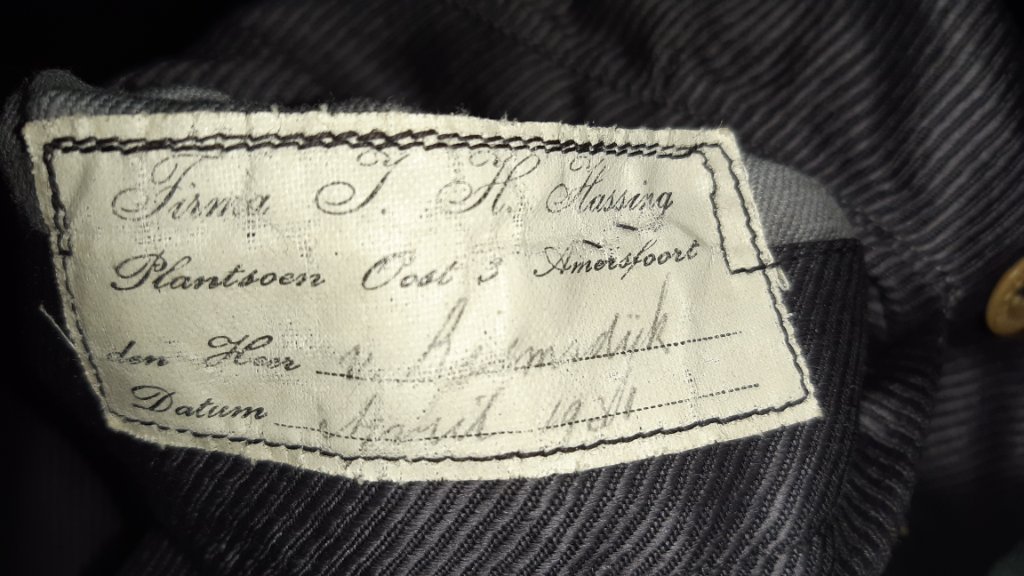 Firma J. H. Hassing
Plantsoen Oost 3 Amersfoort
den Heer v.
Datum April